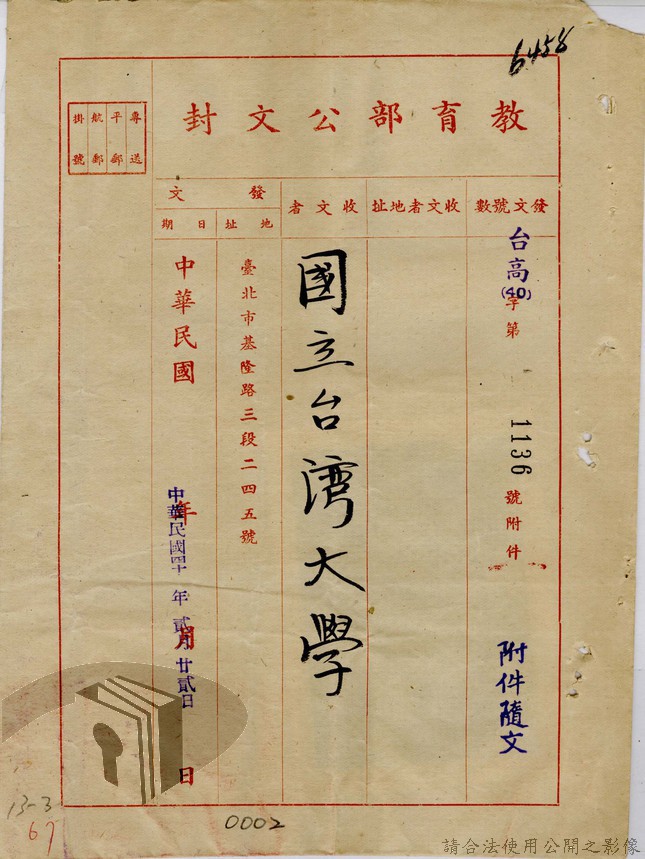 6458
教育部公文封
專送
平郵
航郵
掛號
發文號數
收文者地址
收文者
發文
地址
日期
台高(40)字第1136號附件
附件隨文
國立台灣大學
臺北市基隆路三段二四五號
中華民國 年 月 日
中華民國四十年貳月廿貳日
13-3
67
0002
請合法使用公開之影像